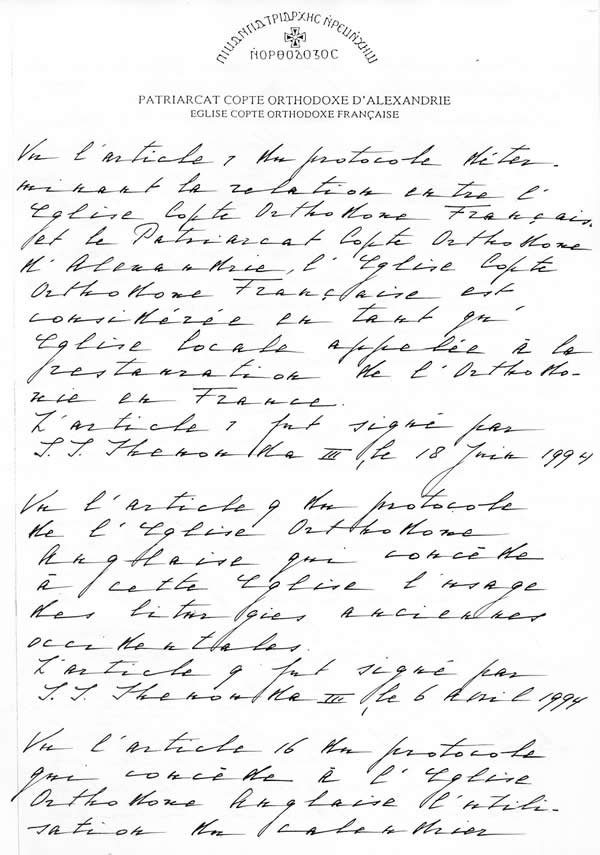 Ⲡⲓⲱⲙⲡⲁⲧⲣⲓⲁⲣⲭⲏⲥ Ⲛⲣⲉⲙⲛⲭⲏⲙⲓ
ⲚⲞⲢⲐⲞⲆⲞⲜⲞⲤ
PATRIARCAT COPTE ORTHODOXE D'ALEXANDRIE
EGLISE COPTE ORTHODOXE FRANÇAISE
Vu l'article 7 du protocole déter-
minant la relation entre l'
Eglise Copte Orthodoxe Français.
et le Patriarcat Copte Orthodoxe
d'Alexandrie, l'Eglise Copte
Orthodoxe Française est
considérée en tant qu'
Eglise locale appelée à la
restauration de l'Orthodo-
xie en France.
L'article 7 fut signé par
S.S. Shenouda III, le 18 Juin 1994
Vu l'article 9 du protocole
de l'Eglise Orthodoxe
Anglaise qui concède
à cette Eglise l'usage
des liturgies anciennes
occidentales.
L'article 9 fut signé par
S.S. Shenouda III, le 6 Avril 1994
Vu l'article 16 du protocole
qui concède à l'Eglise
Orthodoxe Anglaise l'utili-
sation du calendrier